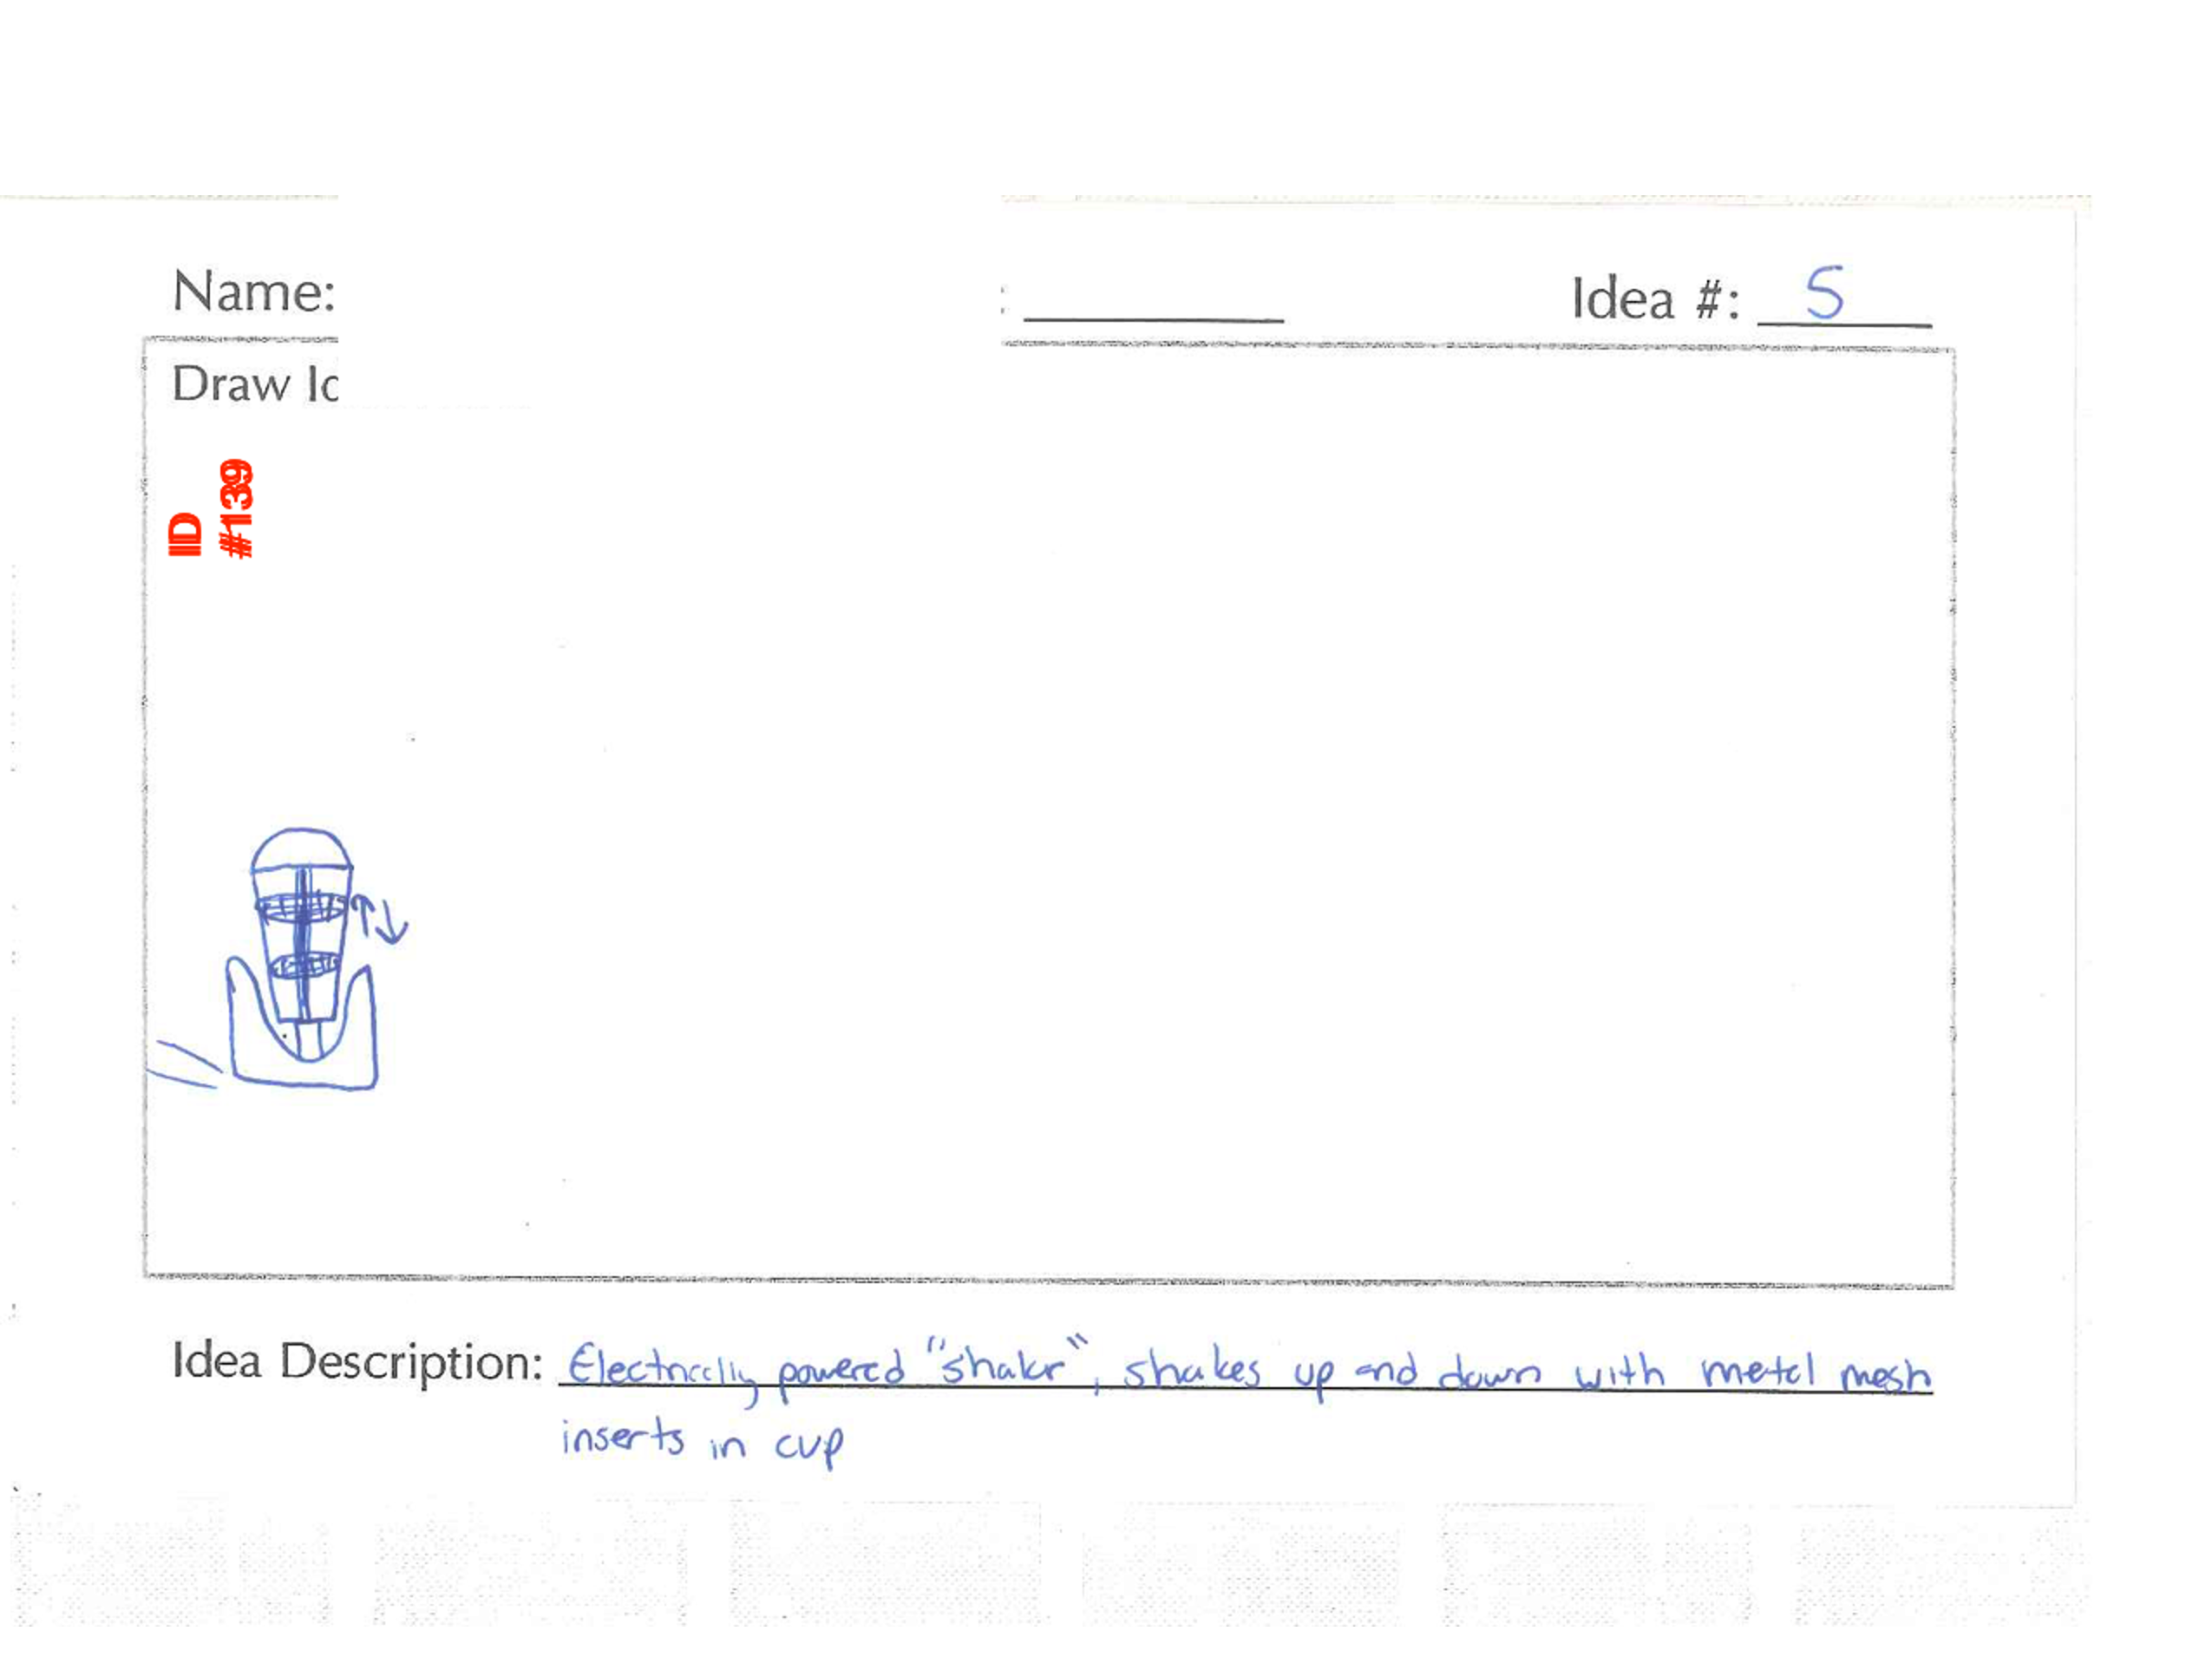 Name:
: Idea #: 5
Draw Id
ID
#139
Idea Description: Electrically powered "shakr", shakes up and down with metal mesh
inserts in cup